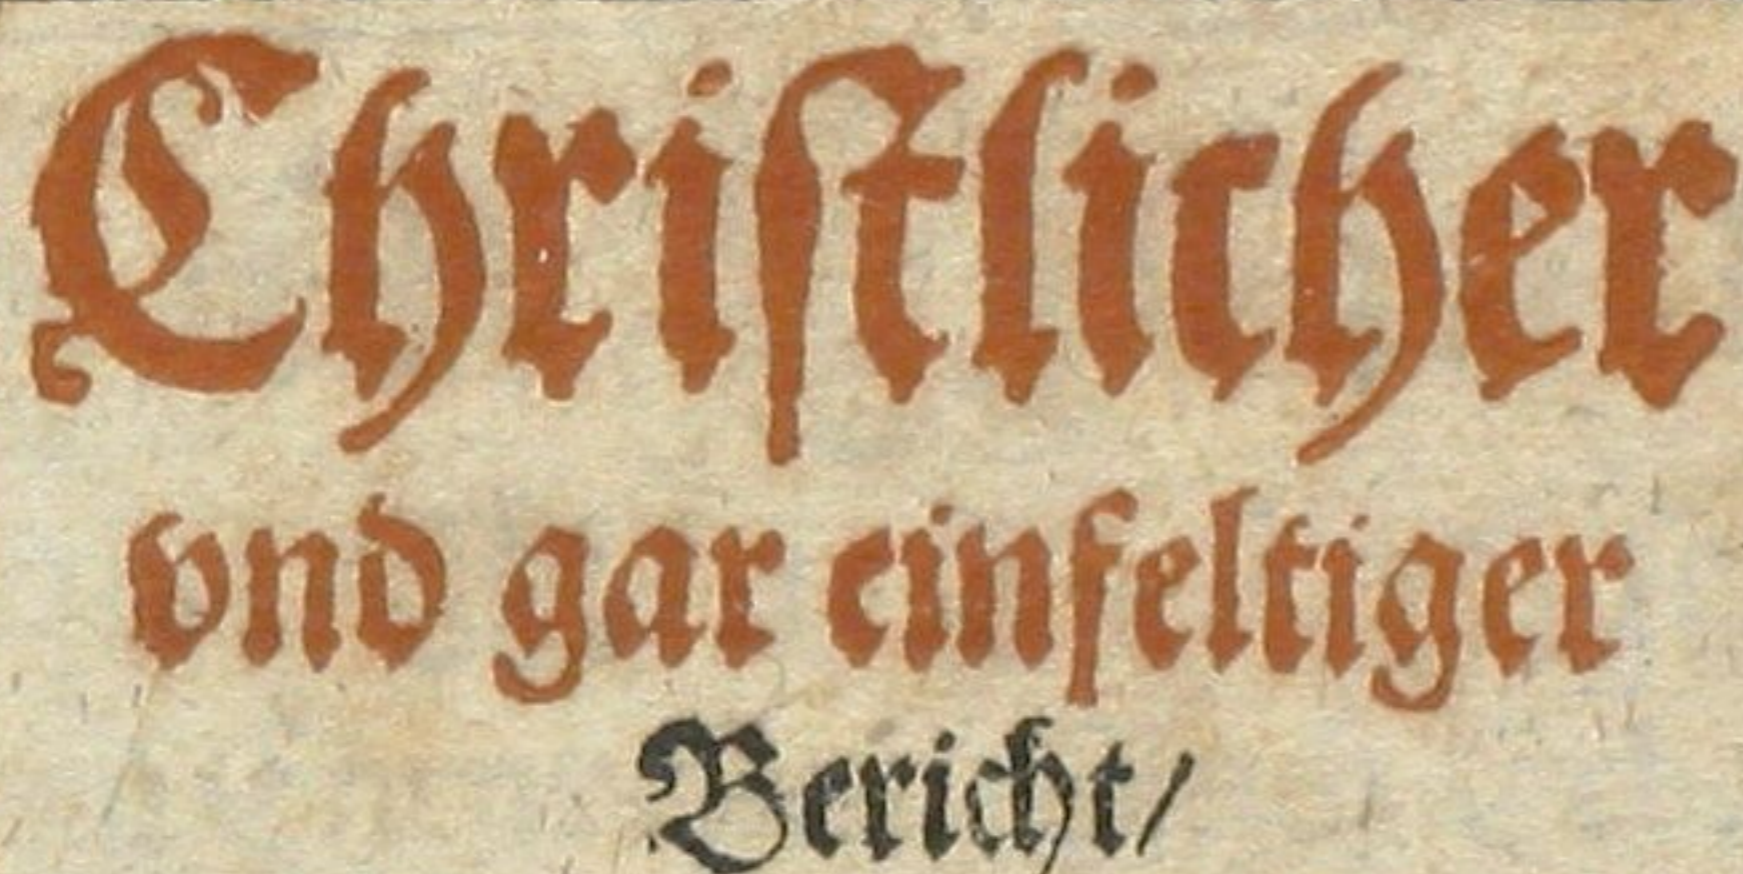 Chriſtlicher
vnd gar einfeltiger
Bericht/